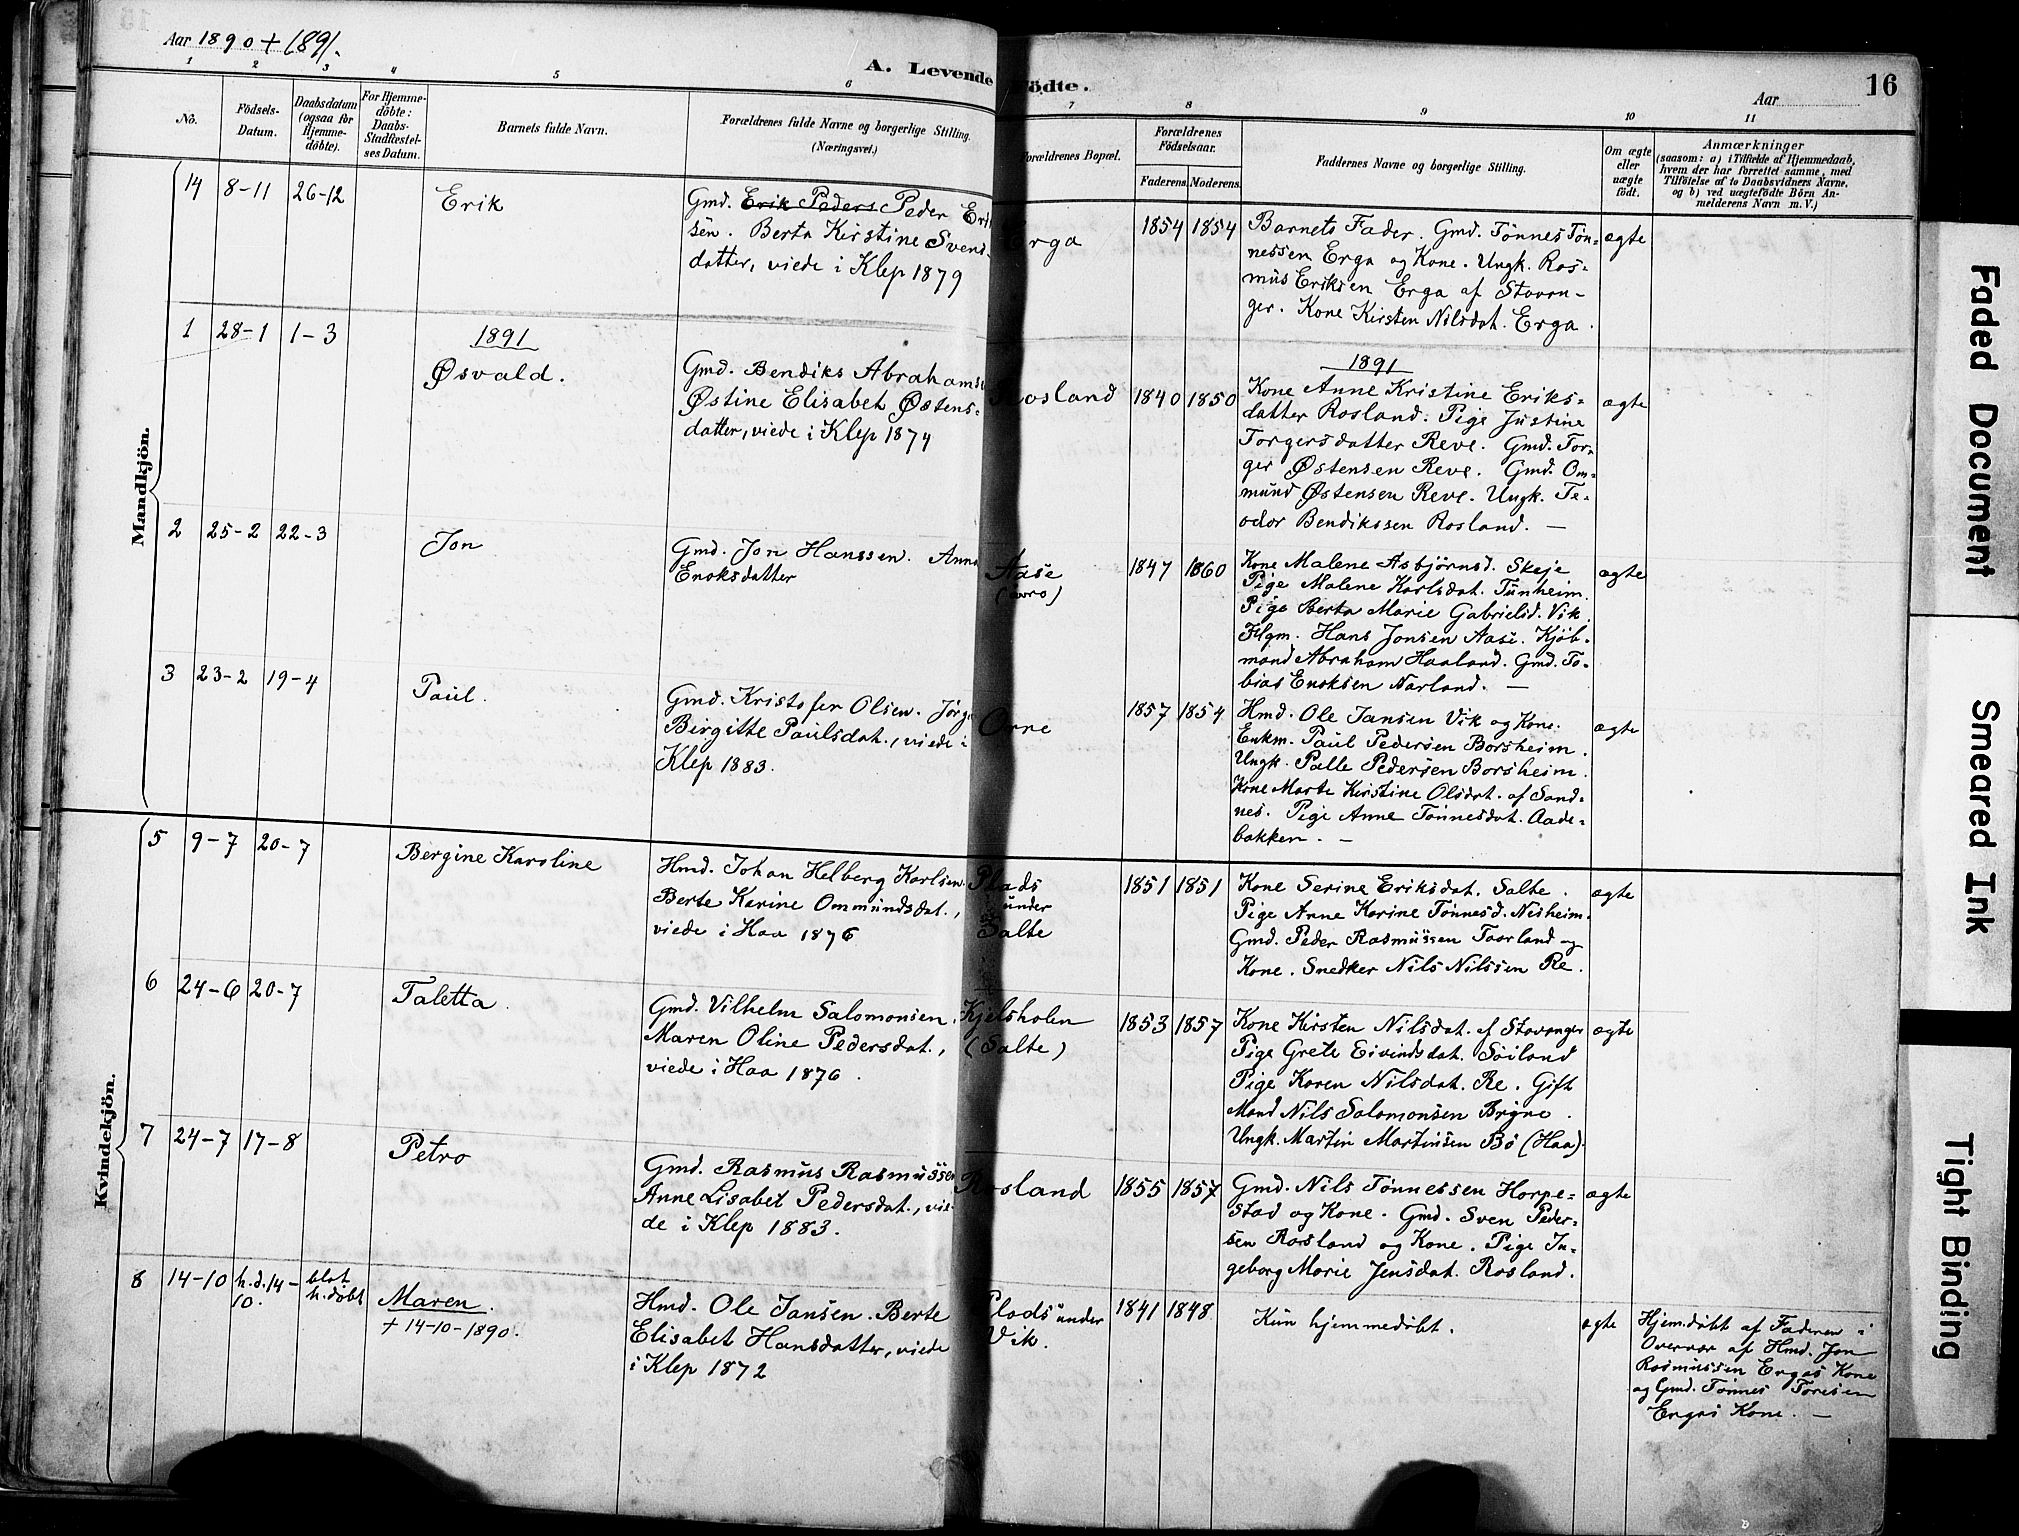 Aar 1890 + 1891.
A. Levende Födte.
Aar
16
1 2 3 4 5 6 7 8 9 10 11
No.
Födsels-Datum.
Daabsdatum (ogsaa for Hjemme-döbte).
For Hjemme-döbte: Daabs-Stadfæstel-ses Datum.
Barnets fulde Navn.
Forældrenes fulde Navne og borgerlige Stilling. (Næringsvei.)
Forældrenes Bopæl.
Forældrenes Födselsaar.
Faderens. Moderens.
Faddernes Navne og borgerlige Stilling.
Om ægte eller uægte födt.
Anmærkninger
(saasom: a) i Tilfælde af Hjemmedaab,
hvem der har forrettet samme, med
Tilföielse af to Daabsvidners Navne.
og b) ved uægtefödte Börn An-
melderens Navn m. V.)
Mandkjön.
14 8-11 26-12 Erik
Gmd. Erik Peders Peder Erik
sen. Berta Kirstine Svend-
datter, viede i Klep 1879
Erga
1854 1854
Barnets Fader. Gmd. Tönnes Tön-
nessen Erga og Kone. Ungk. Ras-
mus Eriksen Erga af Stavan-
ger. Kone Kirsten Nilsdat. Erga.
ægte
1891
1 28-1 1-3 Øsvald.
Gmd. Bendiks Abrahams
Østine Elisabet Østens-
datter, viede i Klep 1874
Rosland
1840 1850
1891
Kone Anne Kristine Eriks-
datter Rosland. Pige Justine
Torgersdatter Reve. Gmd. Tor-
ger Østensen Reve. Gmd. Om-
mund Østensen Reve. Ungk. Te-
odor Bendikssen Rosland. —
ægte
2 25-2 22-3 Jon
Gmd. Jon Hanssen. Anna
Enoksdatter
Aase
(øvro)
1847 1860
Kone Malene Asbjørnsd. Skeje
Pige Malene Karlsdat. Tunheim.
Pige Berta Marie Gabrielsd. Vik
Flgm. Hans Jonsen Aase. Kjöb-
mand Abraham Haaland. Gmd. To-
bias Enoksen Narland. —
ægte
3 23-2 19-4 Paul.
Gmd. Kristofer Olsen. Jörg
Birgitte Paulsdat., viede i
Klep 1883.
Orre
1857 1854
Hmd. Ole Jansen Vik og Kone.
Enkm. Paul Pedersen Borsheim.
Ungk. Palle Pedersen Borsheim.
Kone Marte Kirstine Olsdat. af Sand-
nes. Pige Anne Tönnesdat. Aade-
bakken. —
ægte
Kvindekjön.
5 9-7 20-7 Bergine Karoline
Hmd. Johan Helberg Karlsen.
Berte Karine Ommundsdat.,
viede i Haa 1876
Plads
under
Salte
1851 1851
Kone Serine Eriksdat. Salte.
Pige Anne Karine Tönnesd. Nesheim.
Gmd. Peder Rasmussen Taarland og
Kone. Snedker Nils Nilssen Re.
ægte
6 24-6 20-7 Taletta.
Gmd. Vilhelm Salomonsen.
Maren Oline Pedersdat.,
viede i Haa 1876.
Kjelsholen
(Salte)
1853 1857
Kone Kirsten Nilsdat. af Stavanger
Pige Grete Eivindsdat. Söiland
Pige Karen Nilsdat. Re. Gift
Mand Nils Salomonsen Bryne.
Ungk. Martin Martinsen Bö (Haa).
ægte
7 24-7 17-8 Petra
Gmd. Rasmus Rasmussen
Anne Lisabet Pedersdat., vie-
de i Klep 1883.
Rosland
1855 1857
Gmd. Nils Tönnessen Horpe-
stad og Kone. Gmd. Sven Peder-
sen Rosland og Kone. Pige In-
geborg Marie Jensdat. Rosland.
ægte
8 14-10 h.d. 14-10. blot h.döbt
Maren.
+ 14-10-1890.
Hmd. Ole Jansen. Berte
Elisabet Hansdatter, viede
i Klep 1872
Plads under
Vik.
1841 1848
Kun hjemmedöbt.
ægte
Hjem.döbt af Faderen i
Overvær af Hmd. Jon
Rasmussen Ergas Kone
og Gmd. Tönnes Toresen
Ergas Kone. —
Faded Document
Smeared Ink
Tight Binding